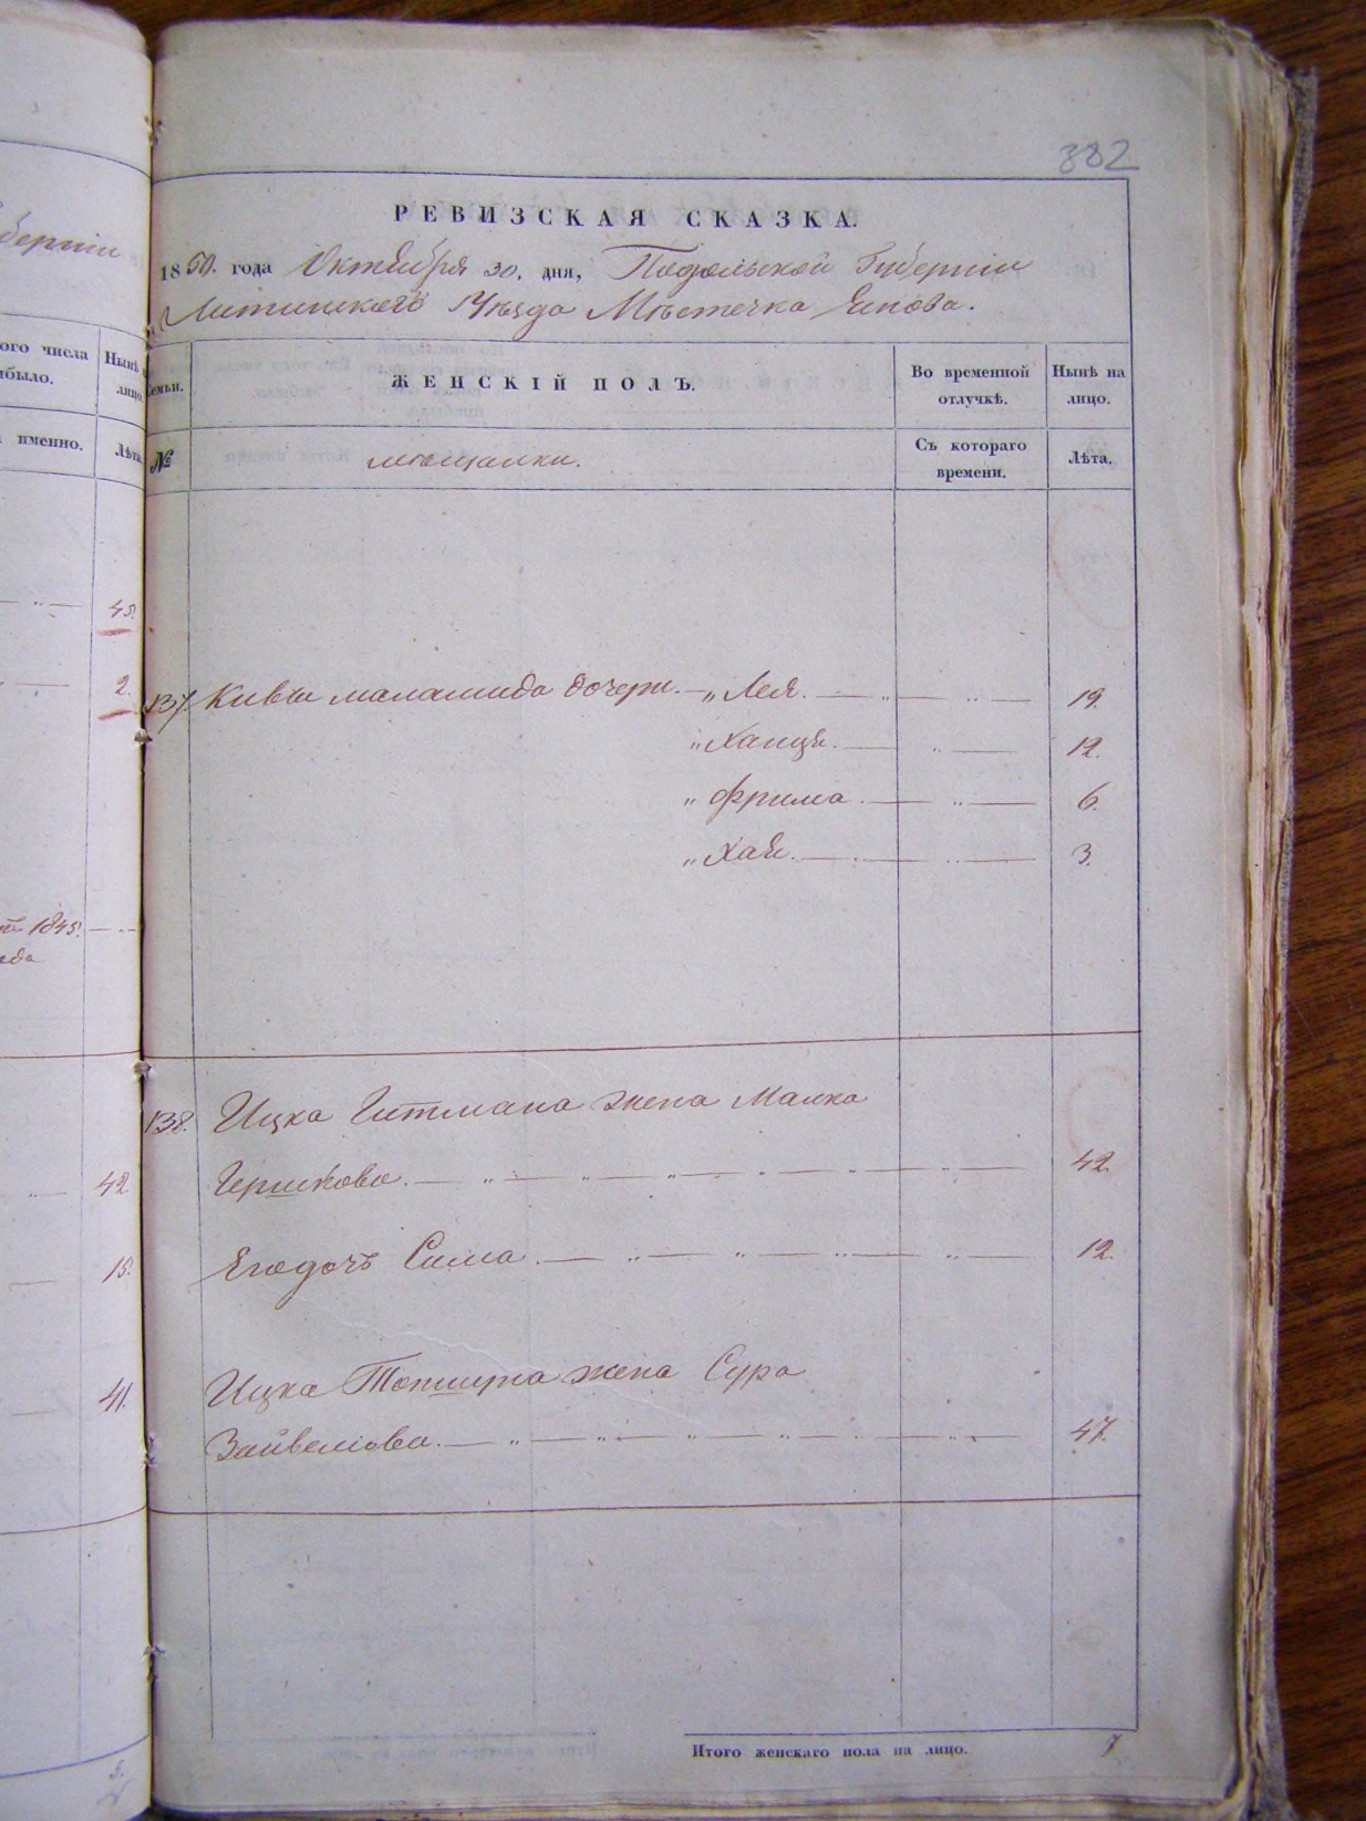 382
берніи
РЕВИЗСКАЯ СКАЗКА.
1850. года Октября 30. дня, Подольской Губерніи
Литинскаго Уѣзда Мѣстечка
ого числа
было.
Нынѣ
лицо.
именно.
Лѣта
Семьи.
ЖЕНСКІЙ ПОЛЪ.
Во временной
отлучкѣ.
Нынѣ на
лицо.
№
мѣщанки.
Съ котораго
времени.
Лѣта.
2.
137. Кивы маламида дочери. — „ Лея. — „ — „ — 19.
„ Ханця. — „ — 12.
„ Фрима. — „ — 6.
„ Хая. — „ — 3.
1845.
138. Ицка Гитмана жена Малка
42
Гершкова. — „ — „ — „ — „ — „ — „ — 42.
15.
Егодочъ Сима. — „ — „ — „ — „ — 12.
41.
Ицка жена Сура
Зайвелова. — „ — „ — „ — „ — „ — 47.
Итого женскаго пола на лицо. 7